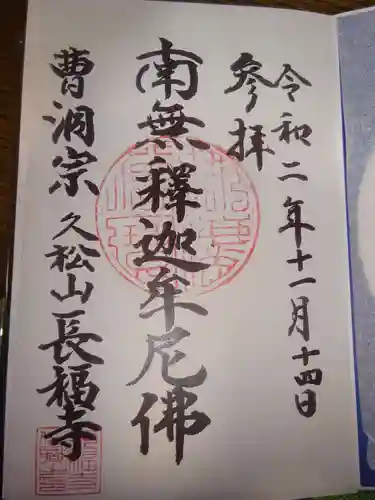 令和二年十一月十四日
参拝
南無釋迦牟尼佛
曹洞宗久松山長福寺